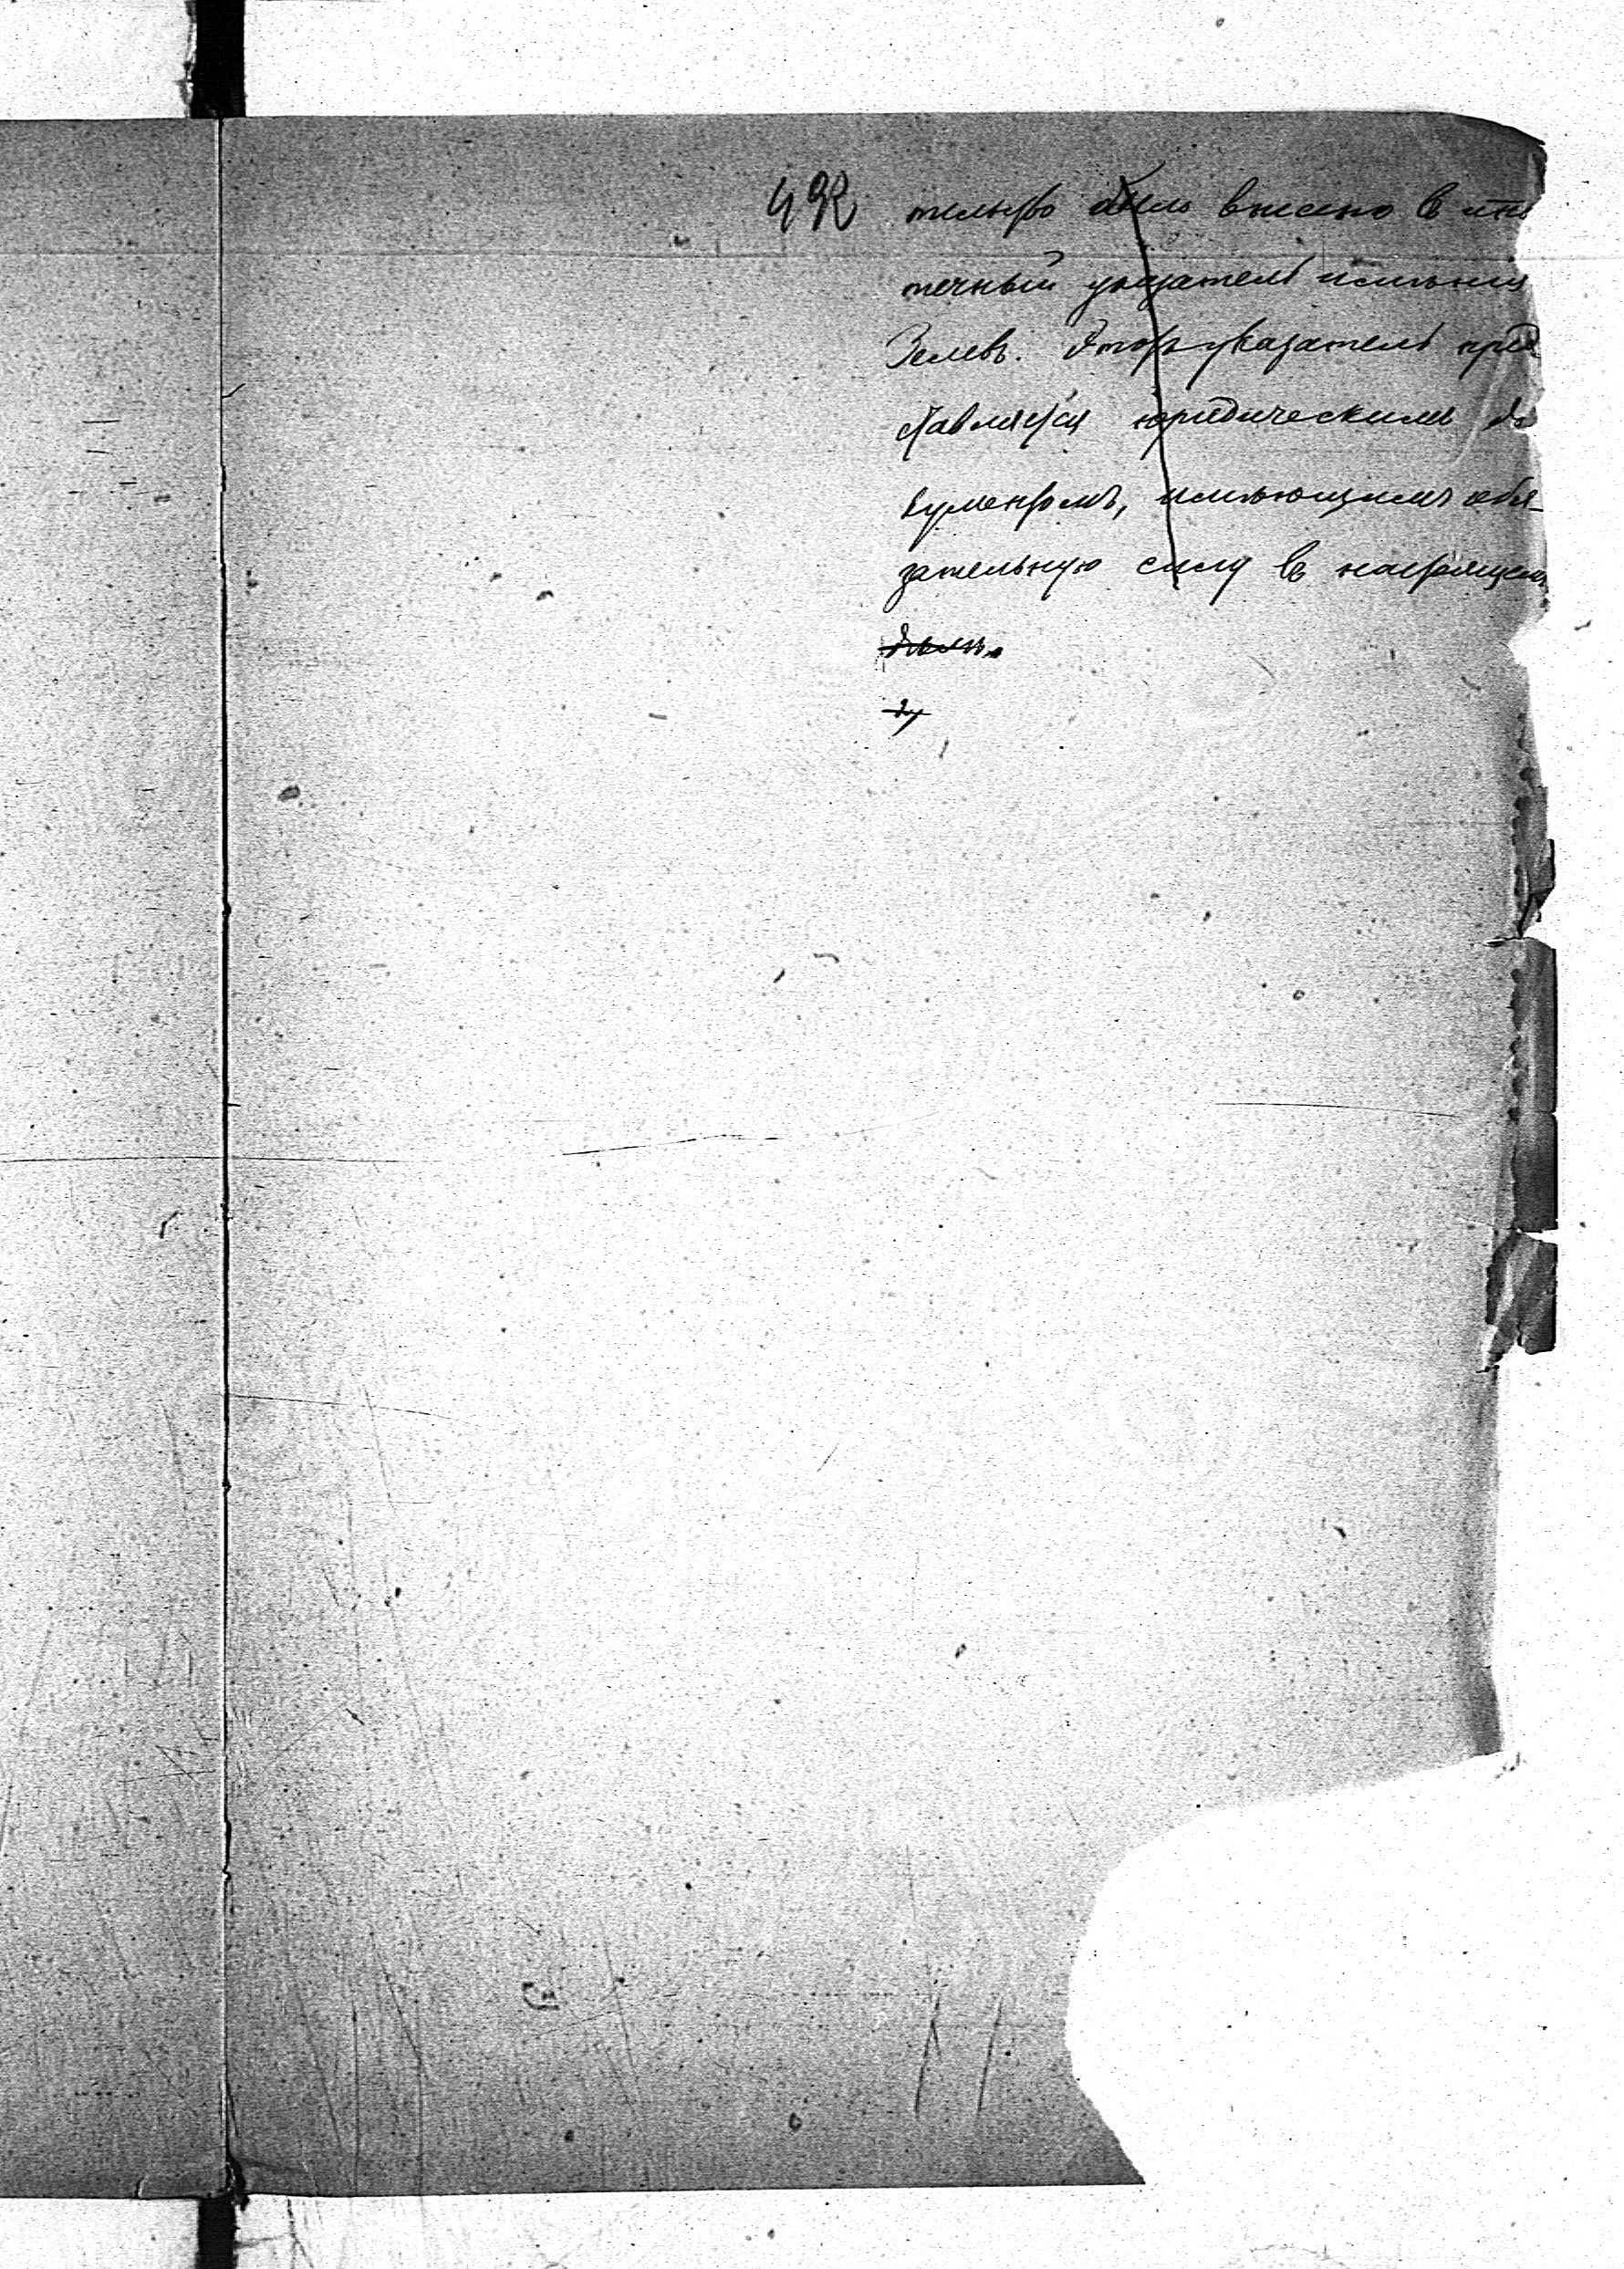 492 тельство было внесено въ ипо
течный указатель имѣнія
Зелевъ. Этотъ указатель пред
ставляется юридическимъ до
кументомъ, имѣющимъ обя-
зательную силу въ настоящемъ
дѣлѣ.